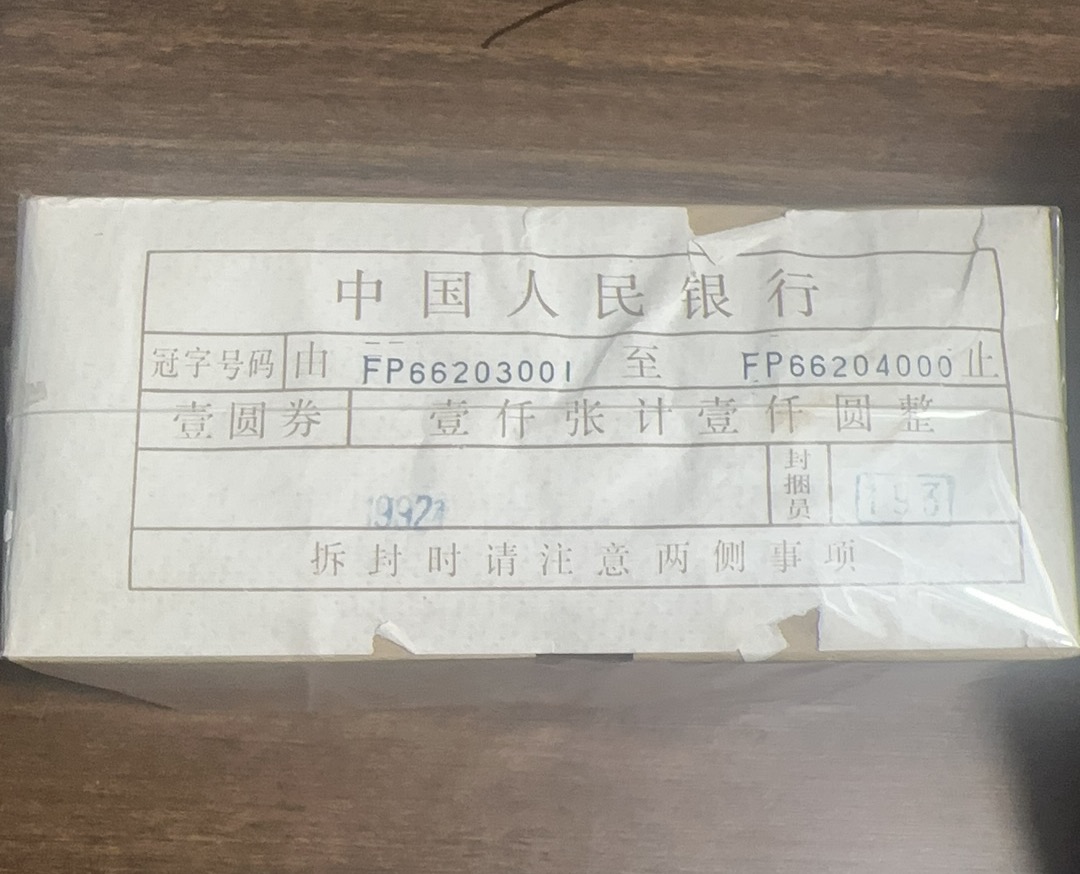 中国人民银行
冠字号码 由 FP66203001 至 FP66204000 止
壹圆券 壹仟张计壹仟圆整
1992 封捆员 193
拆封时请注意两侧事项